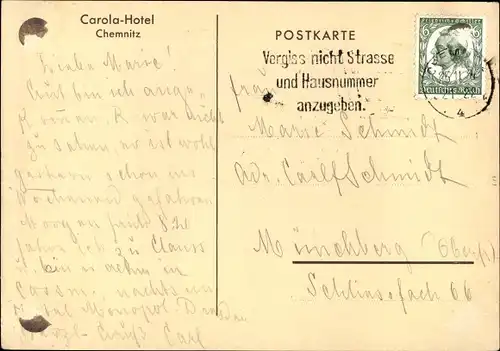 Carola-Hotel
Chemnitz
POSTKARTE
Vergiss nicht Strasse
und Hausnummer
anzugeben.
6 6
Deutsches Reich
4
Liebe Marie!
Gut bin ich ange-
kommen. R. war nicht
zu sehen er ist wohl
gestern schon ins
Wochenend gefahren
Morgen früh 8
fahre ich zu Clauss
u. bin
nachts im
Hotel Monopol Dresden
Herzl. Gruß Carl
Frau
Marie Schmidt
Adr. Carl Schmidt
Münchberg
Schliessfach 66